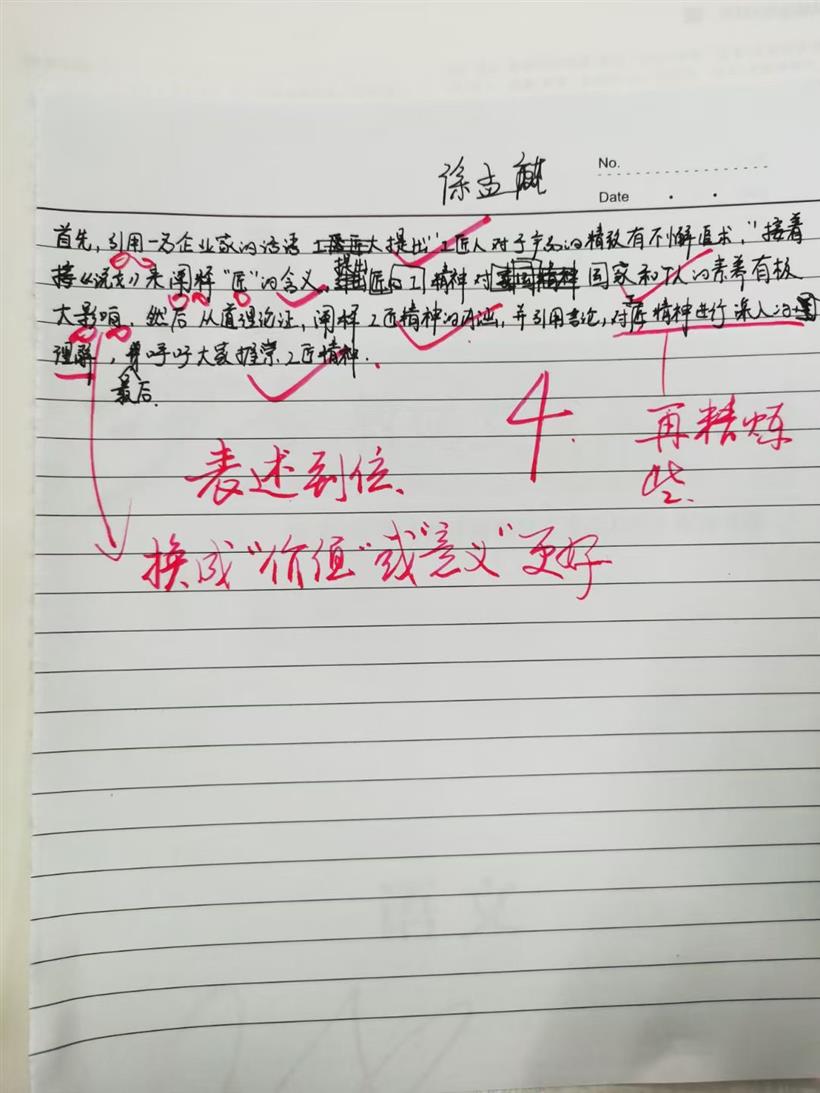 徐孟
No.
Date
首先,引用一名企业家的话语 提出"工匠人对于产品的精致有不懈追求,"接着
提出
《说文》来阐释"匠"的含义, 匠 工 精神对 国家和个人的素养有极
大影响,然后从道理论证,阐释工匠精神的内涵,并引用言论,对匠精神进行深入的
理解,呼吁大家推崇工匠精神.
最后.
4.
再精炼
些.
表述到位、
换成"价值"或"意义"更好